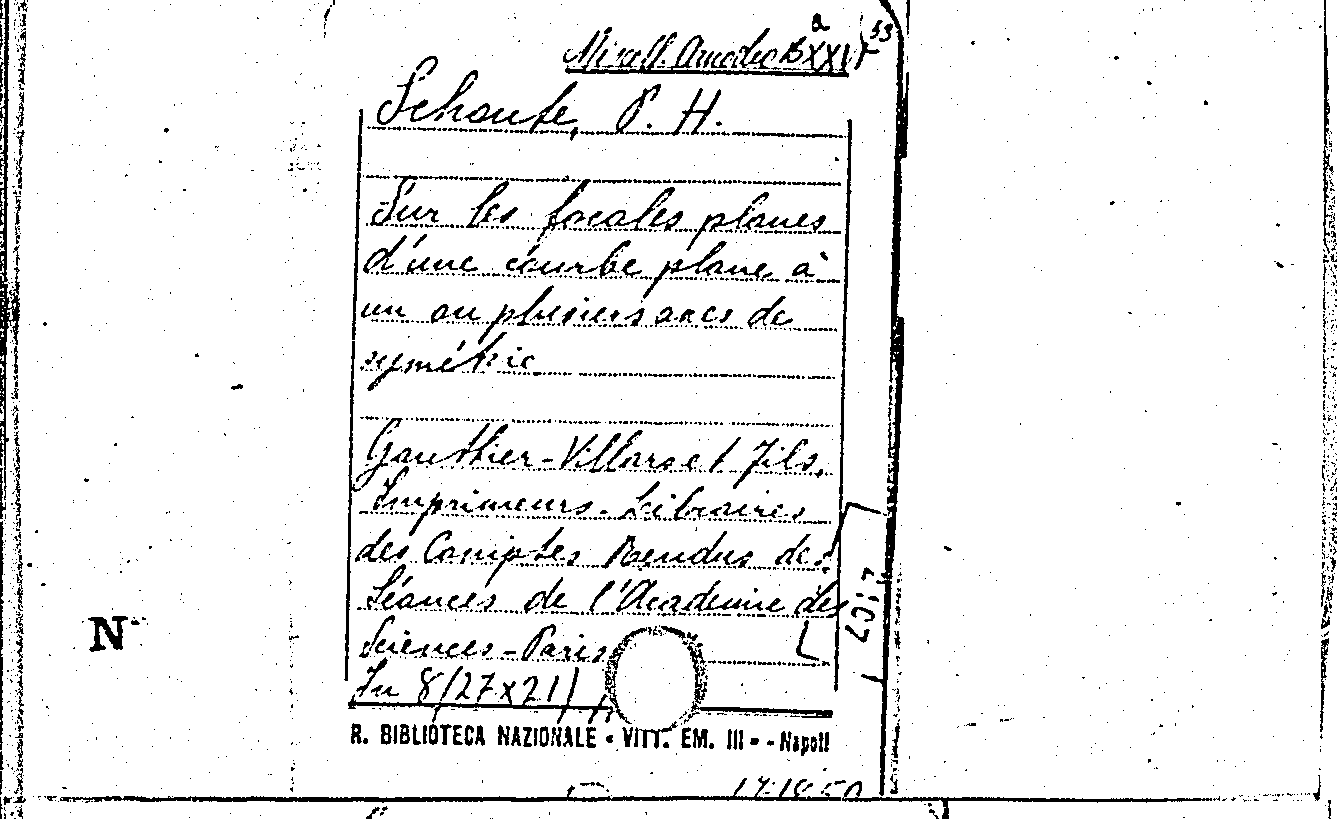 Miscell. Amodeo B XXIV a (53
Schoute, P. H.
Sur les focales planes
d'une courbe plane à
un ou plusieurs axes de
symétrie
Gauthier-Villars et Fils,
Imprimeurs-Libraires
des Comptes Rendus des
Séances de l'Académie des
Sciences-Paris
In 8/27x21/
[1897]
R. BIBLIOTECA NAZIONALE - VITT. EM. III - - Napoli
N